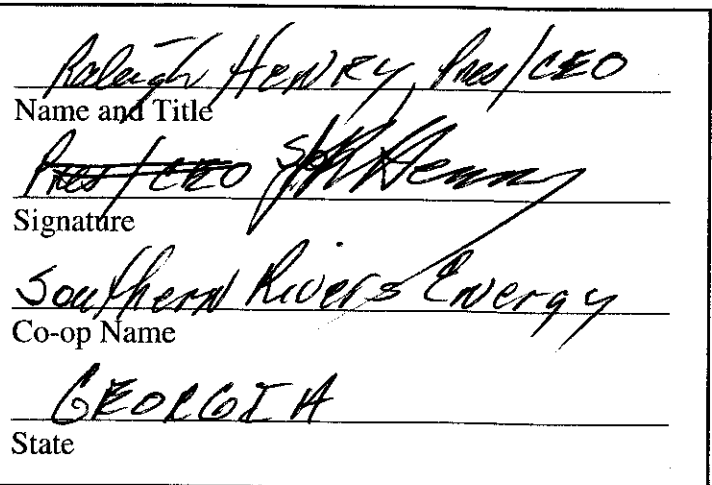 Raleigh Henry, Pres/CEO
Name and Title
Pres/CEO
Signature
Southern Rivers Energy
Co-op Name
GEORGIA
State